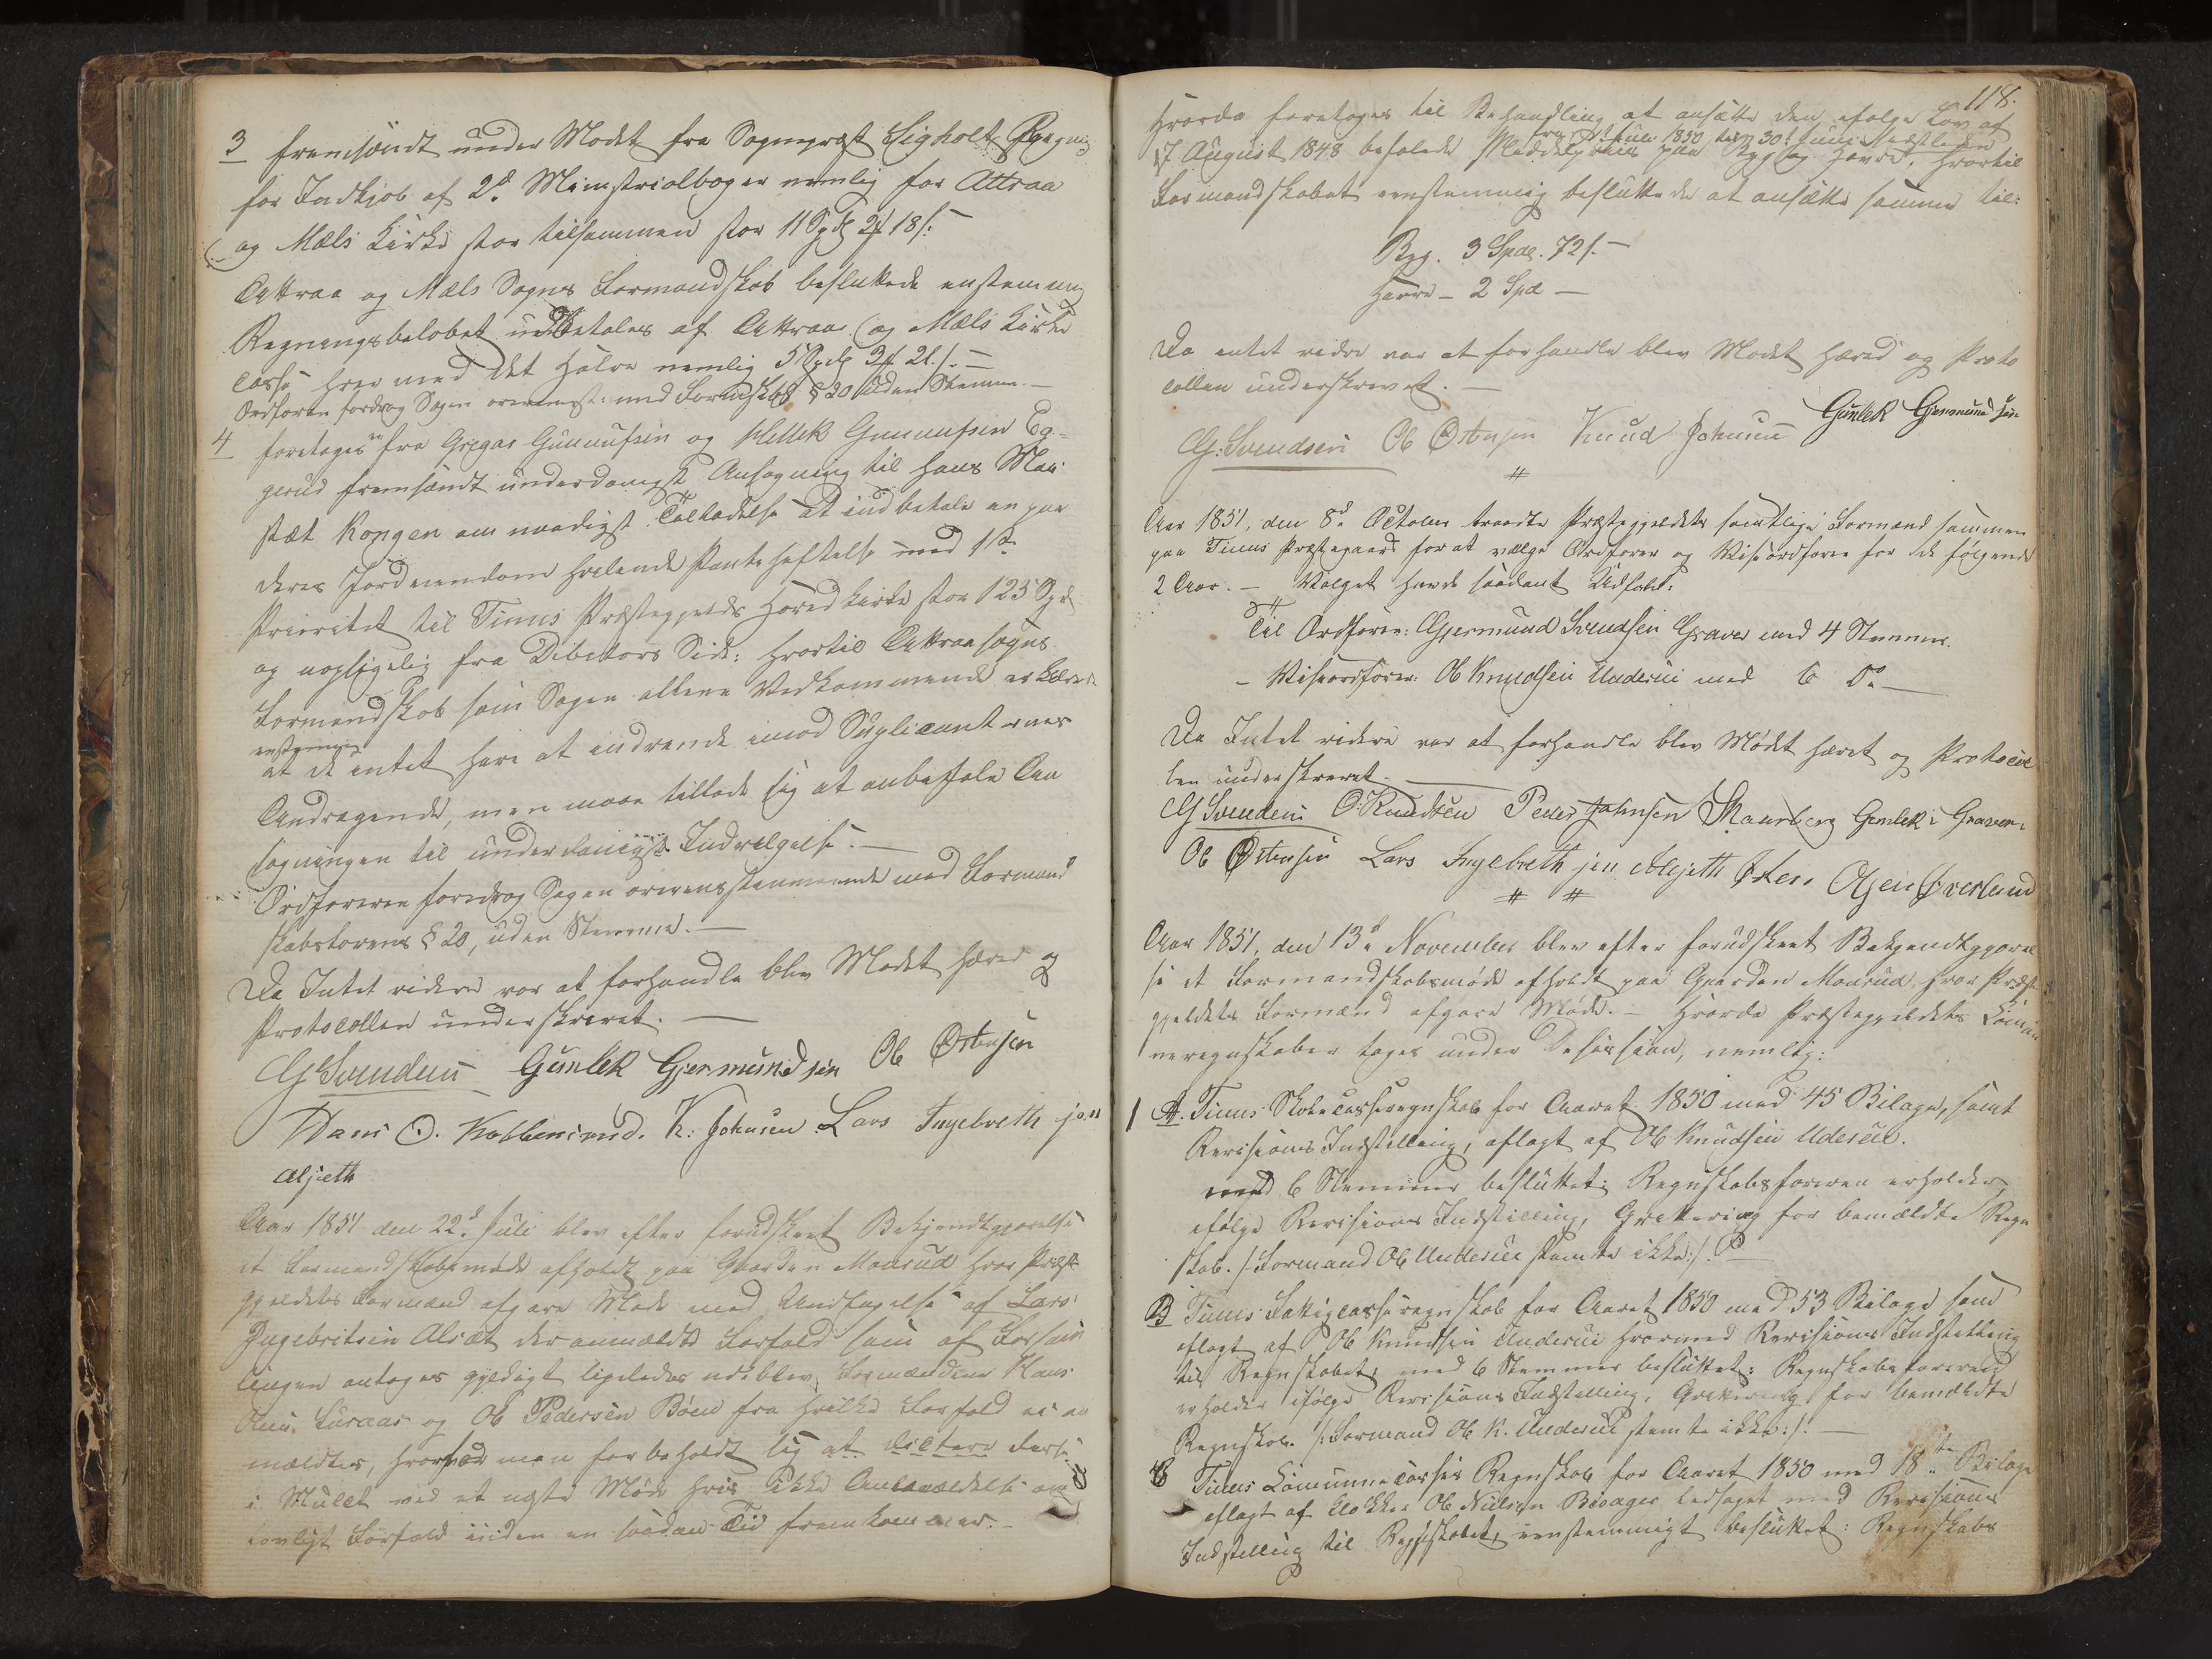 3 fremsendt under Mødet fra Sognepræst Ligholt Regning
for Indkjøb af 2de Ministrialbøger nemlig for Attraa
og Mæls Kirke stor tilsammen stor 11 Spd 2 # 18 s:
Attraa og Mæls Sogns Formandskab besluttede enstemmig
Regningsbeløbet udbetales af Attraa og Mæls Kirke
casse hver med det Halve nemlig 5 Spd 3 # 21 s. –
Ordføren fordrog Sagen overensst: med Formskbl § 20 uden Stemme. –
4 foretoges en fra Gregar Gunnufsen og Hellek Gunnufsen Eg-
gerud fremsendt underdanigst Ansøgning til Hans Maj-
stæt Kongen om naadigst Tilladelse at indbetale en paa
deres Jordeiendom heftende Pantehæftelse med 1ste
Prioritet til Tinns Præstegjelds Hovedkirke stor 125 Spd
og uopsigelig fra Debitors Side: hvortil Attraa Sogns
Formandskab som Sagen allene Vedkommende erklærede
enstemmig
at de intet have at indvende imod Suplicanternes
Andragende, men maa tillade sig at anbefale An
søgningen til underdanigst Indvilgelse. –
Ordføreren foredrog Sagen overensstemmende med Formand
skabslovens § 20, uden Stemme. –
Da Intet videre var at forhandle blev Mødet hævet og
Protocollen underskrevet. –
G Svendsen Gunlek Gjermundsen Ole Østensen
Hans O. K. Johnsen Lars Ingebreth sen
Alsjeth
Aar 1851 den 22d Juli blev efter forudskeet Bekjendtgjørelse
et Formandskabsmøde afholdt paa Gaarden Maurud hvor Præste
gjeldets Formænd afgave Møde med Undtagelse af Lars
Ingebritsen Alsæt der anmældte Forfald som af Forsam
lingen antoges gyldigt ligeledes udeblev Formændene Hans
Luraas og Ole Pedersen Bøen fra hvilke Forfald ei an
mældtes, hvorfor man forbeholdt sig at dictere disse
i Mulct ved et næste Møde hvis ikke Anmældelse om
lovligt Forfald inden en saadan Tid fremkommer. –
118.
Hvorda foretoges til Behandling at ansætte den ifølge Lov af
fra 1st Juli 1850 til 30t Juni sidstleden
17 August 1848 befalede Middelpriis paa Byg og Havre, hvortil
Formandskabet eenstemmig besluttede at ansætte samme til:
Byg. 3 Spd. 72 s. –
Havre – 2 Spd –
Da intet vidre var at forhandle blev Mødet hæved og Proto
collen underskrevet. –
G: Svendsen Ole Østensen Knud Johnsen Gunlek Gjermundsen
#
Aar 1851, den 8de October traadte Præstegjeldets samtlige Formænd sammen
paa Tinns Præstegaard for at vælge Ordfører og Viseordfører for de følgende
2 Aar. – Valget havde saadant Udfald:
Til Ordfører: Gjermund Svendsen Graver med 4 Stemmer.
– Viseordfører: Ole Knudsen Underui med 6 Do –
Da Intet videre var at forhandle blev Mødet hævet og Protocol
len underskrevet. –
G Svendsen O: Knudsen Peder Johnsen Skaarberg Gunlek Graver
Ole Østensen Lars Ingebreth sen Alsjeth Østen Olsen Øverland
# #
Aar 1851, den 13de November blev efter forudskeet Bekjendtgjørel
se et Formandskabsmøde afholdt paa Gaarden Maurud hvor Præste
gjeldets Formænd afgave Møde. – Hvorda Præstegjeldets Commu
neregnskaber toges under Desission, nemlig:
1 A. Tinns Skolecasseregnskab for Aaret 1850 med 45 Bilage, samt
Revisions Indstilling, aflagt af Ole Knudsen Uderui.
med 6 Stemmer besluttet: Regnskabsføreren erholder
ifølge Revisions Indstilling, Qvittering for bemældte Regn
skab. /: Formand Ole Underui stemte ikke :/. –
B Tinns Fattigcasseregnskab for Aaret 1850 med 53 Bilage som
aflagt af Ole Knudsen Underui hvormed Revisions Indstilling
til Regnskabet, med 6 Stemmer besluttet: Regnskabsføreren
erholder ifølge Revisions Indstilling, Qvittering for bemældte
Regnskab. /: Formand Ole K. Underui stemte ikke :/. –
C Tinns Communecasses Regnskab for Aaret 1850 med 18ten Bilage
aflagt af Klokker Ole Nielsen ledsaget med Revisions
Indstilling til Regnskabet, eenstemmigt besluttet: Regnskabs